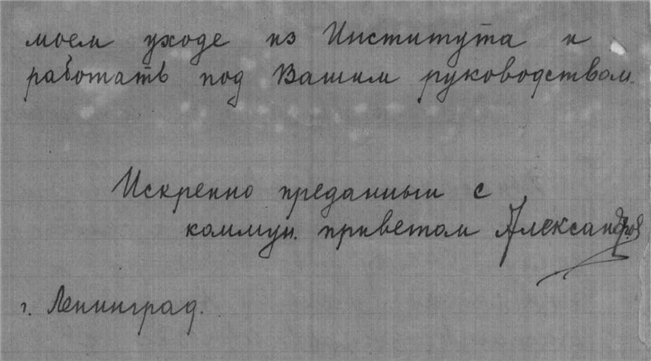 моем уходе из Института и
работать под Вашим руководством.
Искренно преданный с
коммун. приветом Александров
г. Ленинград.